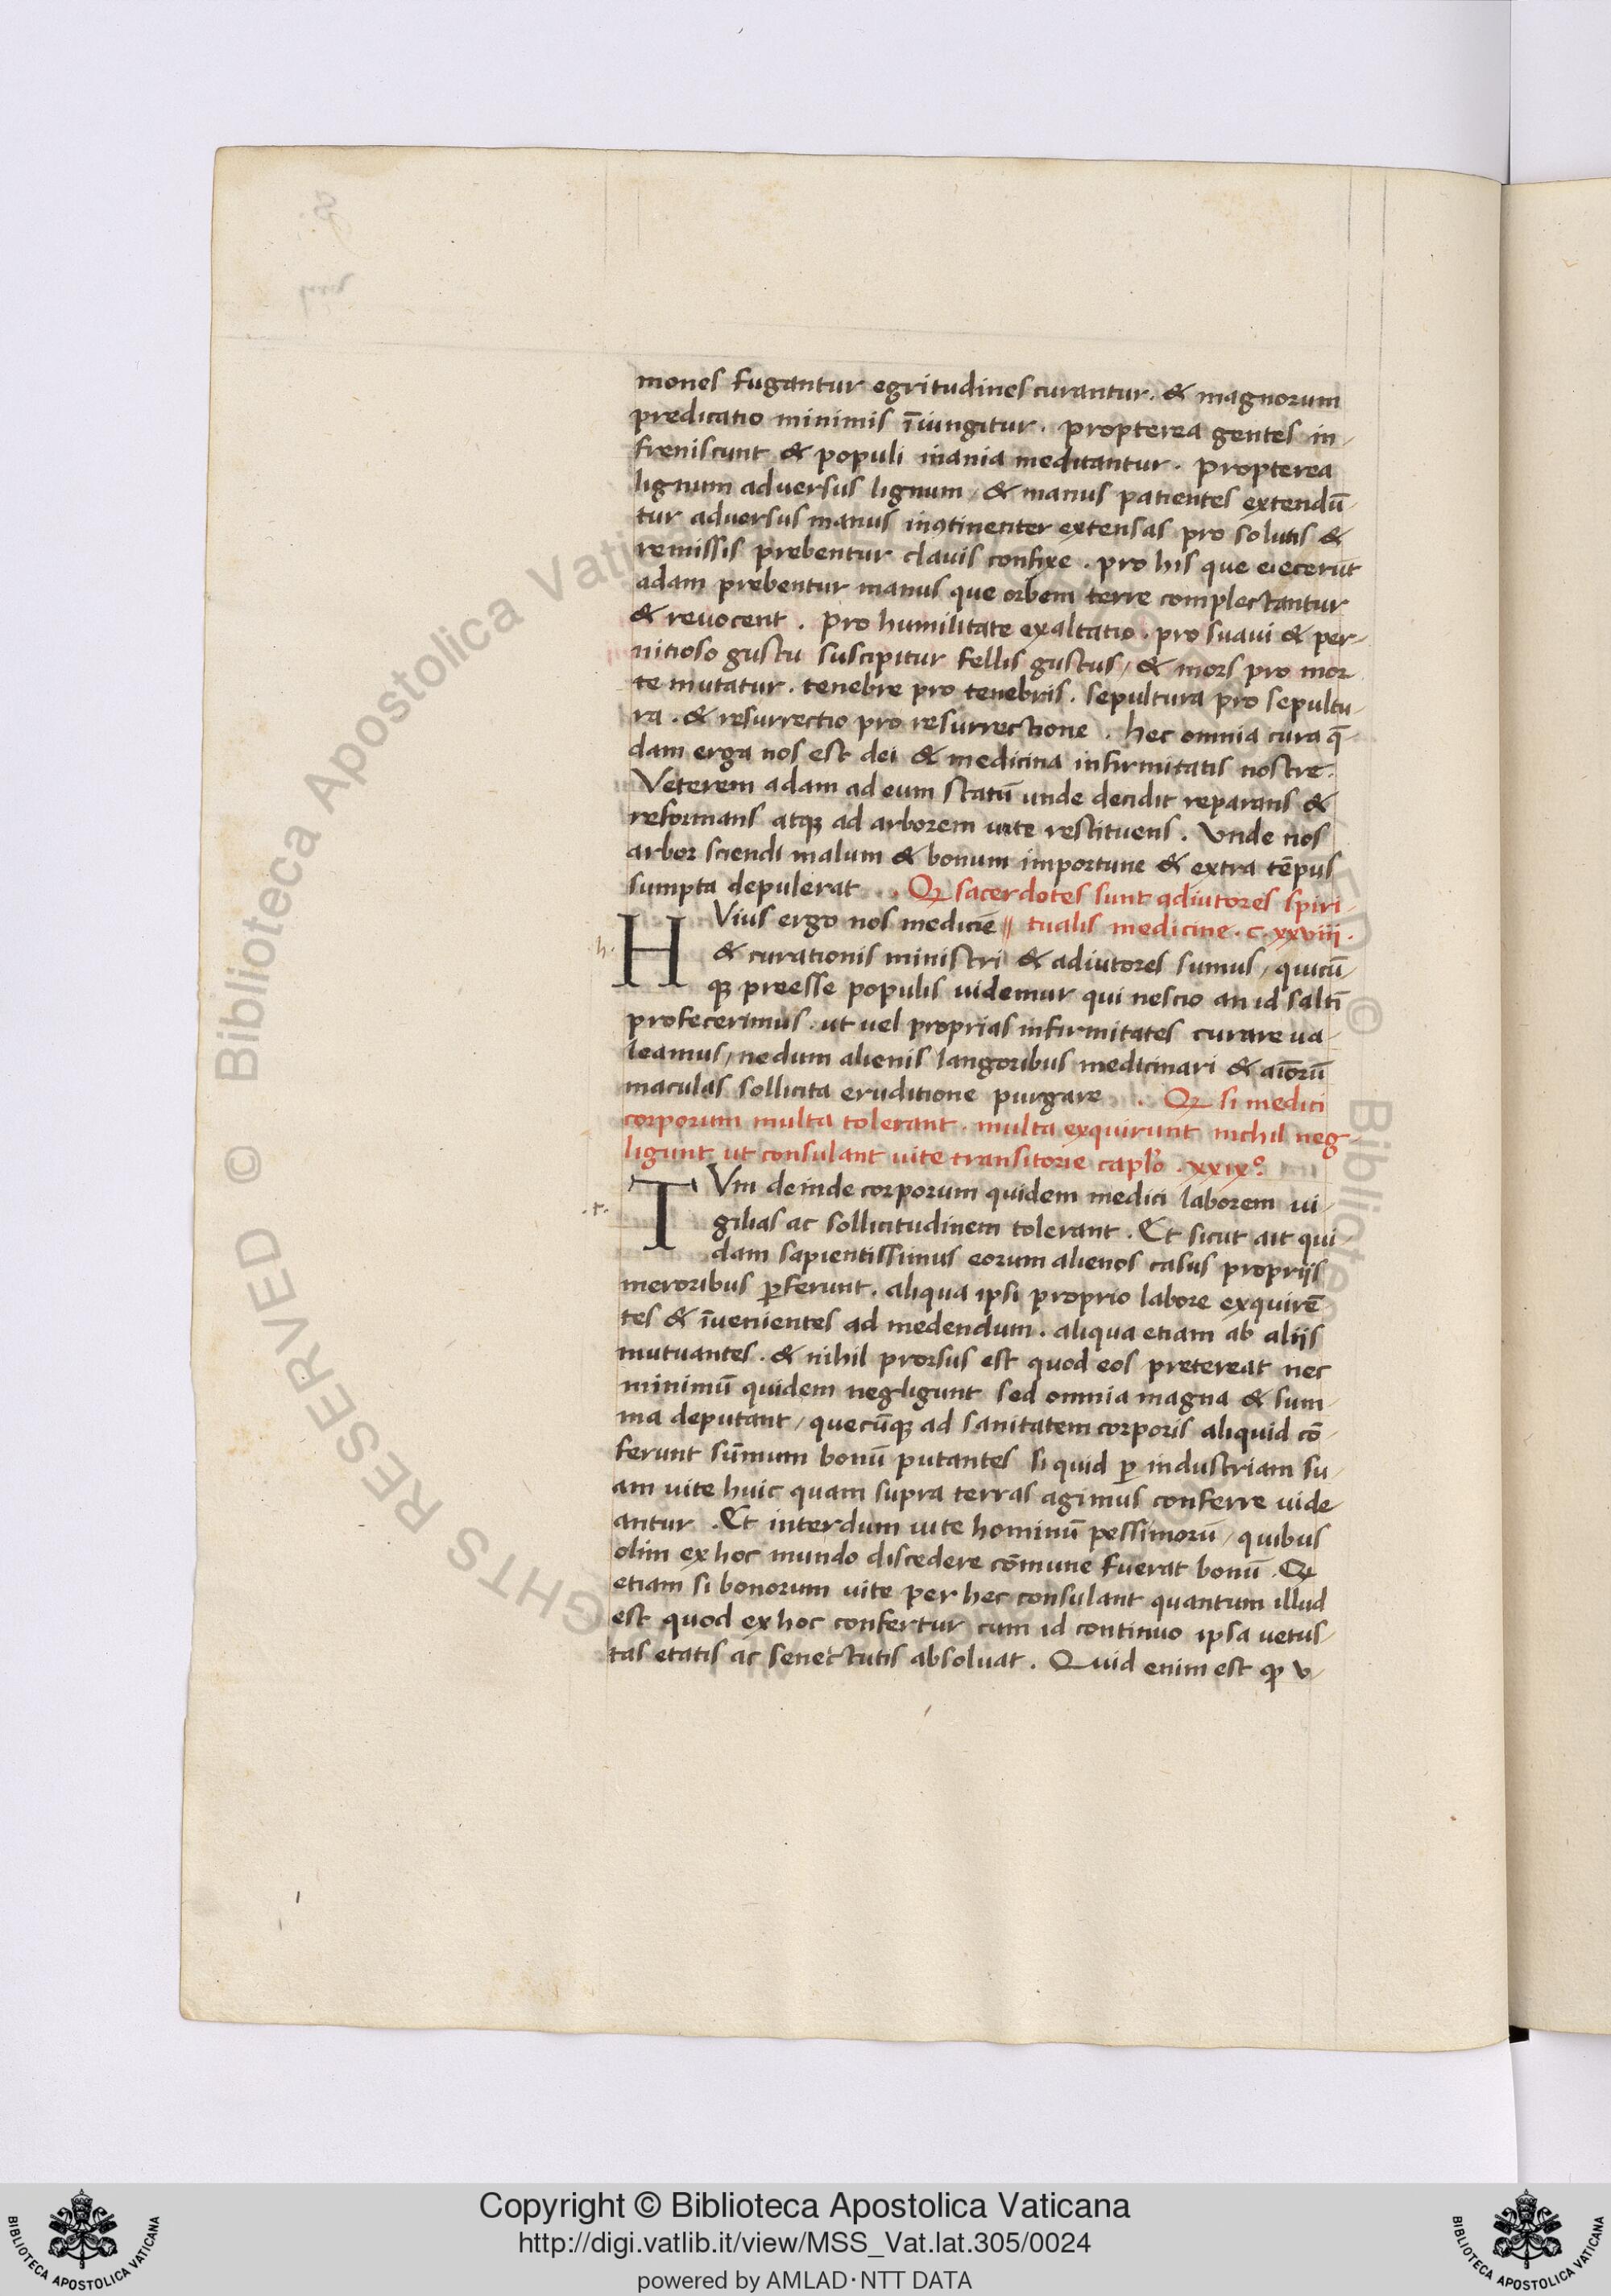 mones fugantur egritudines curantur. & magnorum
predicatio minimis īiungitur. propterea gentes in-
freniscunt & populi inania meditantur. propterea
lignum adversus lignum / & manus patientes extendū-
tur adversus manus inꝯtinenter extensas pro solutis &
remissis prebentur clavis confixe. pro his que eiecerūt
adam prebentur manus que orbem terre complectantur
& revocent. pro humilitate exaltatio. pro suavi & per-
nitioso gustu suscipitur fellis gustus / & mors pro mor
te mutatur. tenebre pro tenebris. sepultura pro sepultu-
ra. & resurrectio pro resurrectione. hec omnia cura q̄-
dam erga nos est dei & medicina infirmitatis nostre.
Veterem adam ad eum statū unde decidit reparans &
reformans atqꝫ ad arborem uite restituens. Vnde nos
arbor sciendi malum & bonum importune & extra tēpus
sumpta depulerat. . Qꝫ sacerdotes sunt adiutores spiri-
HVius ergo nos medicīe // tualis medicine. c. xxviii.
h.
& curationis ministri & adiutores sumus / quicū-
qꝫ preesse populis uidemur qui nescio an id saltī
profecerimus. ut uel proprias infirmitates curare ua-
leamus / nedum alienis langoribus medicinari & aīorū
maculas sollicita eruditione purgare. Qꝫ si medici
corporum multa tolerant. multa exquirunt nichil neg-
ligunt ut consulant uite transitorie caplo. xxix°.
TVm deinde corporum quidem medici laborem ui-
.t.
gilias ac sollicitudinem tolerant. Et sicut ait qui-
dam sapientissimus eorum alienos casus propriis
meroribus ꝑferunt. aliqua ipsi proprio labore exquirē
tes & īuenientes ad medendum. aliqua etiam ab aliis
mutuantes. & nihil prorsus est quod eos pretereat nec
minimū quidem negligunt sed omnia magna & sum-
ma deputant / quecūqꝫ ad sanitatem corporis aliquid cō-
ferunt sūmum bonū putantes si quid ꝑ industriam su-
am uite huic quam supra terras agimus conferre uide
antur. Et interdum uite hominū pessimorū / quibus
olim ex hoc mundo discedere cōmune fuerat bonū. Qꝫ
etiam si bonorum uite per hec consulant quantum illud
est quod ex hoc confertur cum id continuo ipsa uetus-
tas etatis ac senectutis absoluat. Quid enim est ꝙ v-
Copyright © Biblioteca Apostolica Vaticana
http://digi.vatlib.it/view/MSS_Vat.lat.305/0024
powered by AMLAD·NTT DATA
BIBLIOTECA APOSTOLICA VATICANA
BIBLIOTECA APOSTOLICA VATICANA